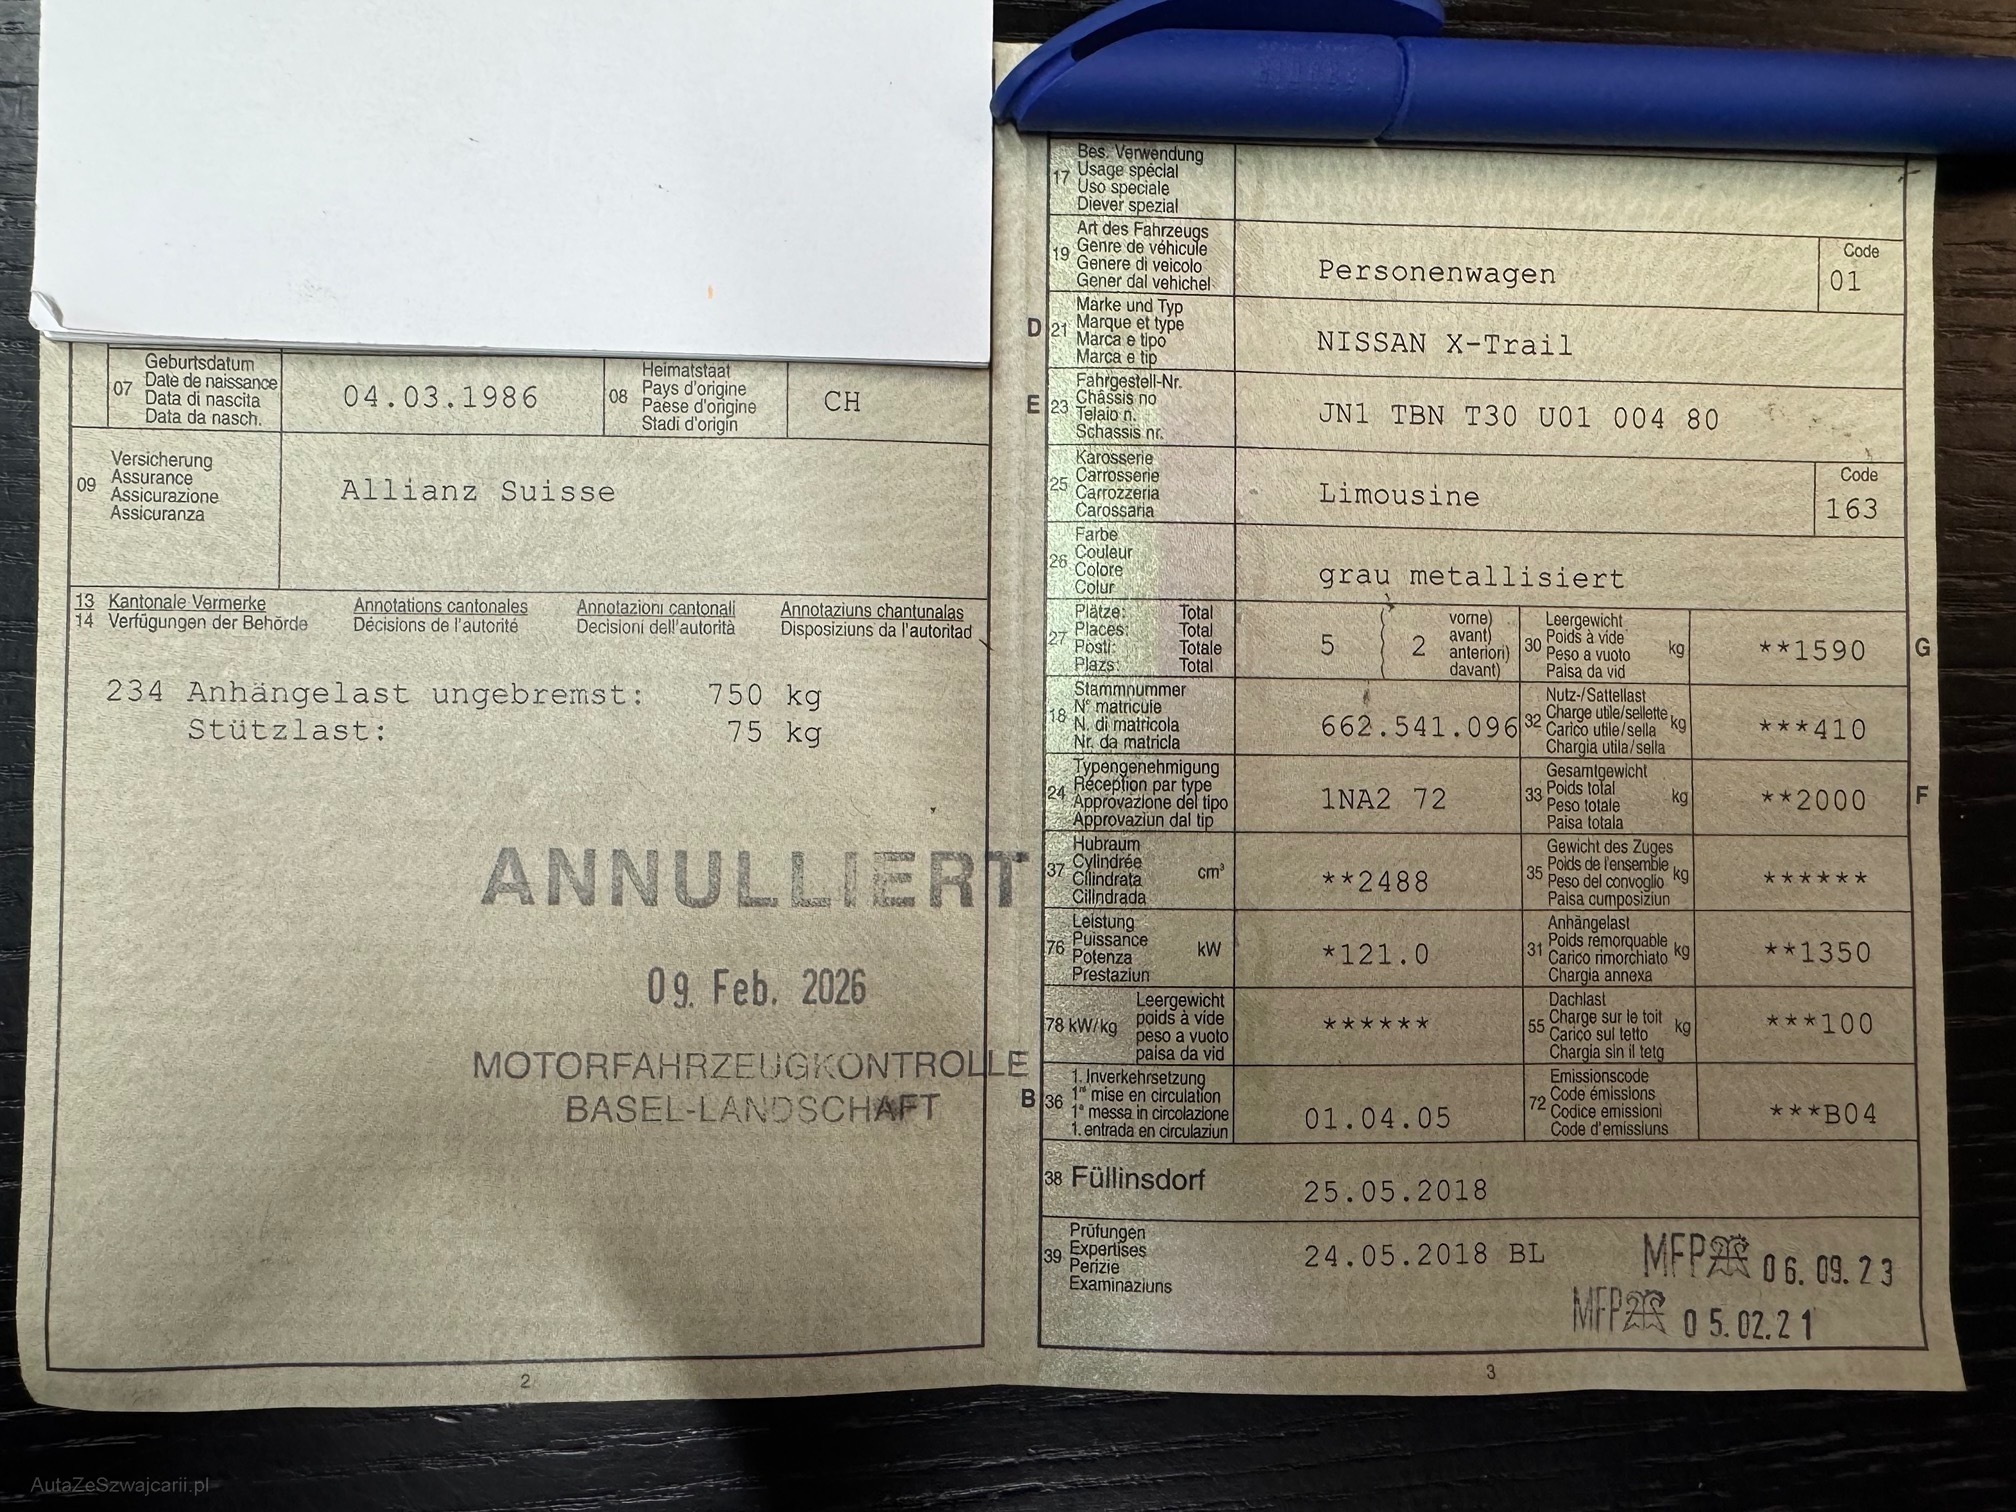 07 Geburtsdatum
Date de naissance
Data di nascita
Data da nasch.
04.03.1986
08 Heimatstaat
Pays d'origine
Paese d'origine
Stadi d'origin
CH
09 Versicherung
Assurance
Assicurazione
Assicuranza
Allianz Suisse
13 Kantonale Vermerke Annotations cantonales Annotazioni cantonali Annotaziuns chantunalas
14 Verfügungen der Behörde Décisions de l'autorité Decisioni dell'autorità Disposiziuns da l'autoritad
234 Anhängelast ungebremst: 750 kg
Stützlast: 75 kg
ANNULLIERT
09. Feb. 2026
MOTORFAHRZEUGKONTROLLE
BASEL-LANDSCHAFT
2
17 Bes. Verwendung
Usage spécial
Uso speciale
Diever spezial
19 Art des Fahrzeugs
Genre de véhicule
Genere di veicolo
Gener dal vehichel
Personenwagen
Code
01
D 21 Marke und Typ
Marque et type
Marca e tipo
Marca e tip
NISSAN X-Trail
E 23 Fahrgestell-Nr.
Châssis no
Telaio n.
Schassis nr.
JN1 TBN T30 U01 004 80
25 Karosserie
Carrosserie
Carrozzeria
Carossaria
Limousine
Code
163
26 Farbe
Couleur
Colore
Colur
grau metallisiert
27 Plätze: Total
Places: Total
Posti: Totale
Plazs: Total
5 2
vorne)
avant)
anteriori)
davant)
30 Leergewicht
Poids à vide
Peso a vuoto
Paisa da vid
kg
**1590
G
18 Stammnummer
N° matricule
N. di matricola
Nr. da matricla
662.541.096
32 Nutz-/Sattellast
Charge utile/sellette
Carico utile/sella
Chargia utila/sella
kg
***410
24 Typengenehmigung
Réception par type
Approvazione del tipo
Approvaziun dal tip
1NA2 72
33 Gesamtgewicht
Poids total
Peso totale
Paisa totala
kg
**2000
F
37 Hubraum
Cylindrée
Cilindrata
Cilindrada
cm³
**2488
35 Gewicht des Zuges
Poids de l'ensemble
Peso del convoglio
Paisa cumposiziun
kg
******
76 Leistung
Puissance
Potenza
Prestaziun
kW
*121.0
31 Anhängelast
Poids remorquable
Carico rimorchiato
Chargia annexa
kg
**1350
78 kW/kg
Leergewicht
poids à vide
peso a vuoto
paisa da vid
******
55 Dachlast
Charge sur le toit
Carico sul tetto
Chargia sin il tetg
kg
***100
B 36 1. Inverkehrsetzung
1re mise en circulation
1a messa in circolazione
1. entrada en circulaziun
01.04.05
72 Emissionscode
Code émissions
Codice emissioni
Code d'emissiuns
***B04
38 Füllinsdorf
25.05.2018
39 Prüfungen
Expertises
Perizie
Examinaziuns
24.05.2018 BL
MFP 06.09.23
MFP 05.02.21
3
AutaZeSzwajcarii.pl